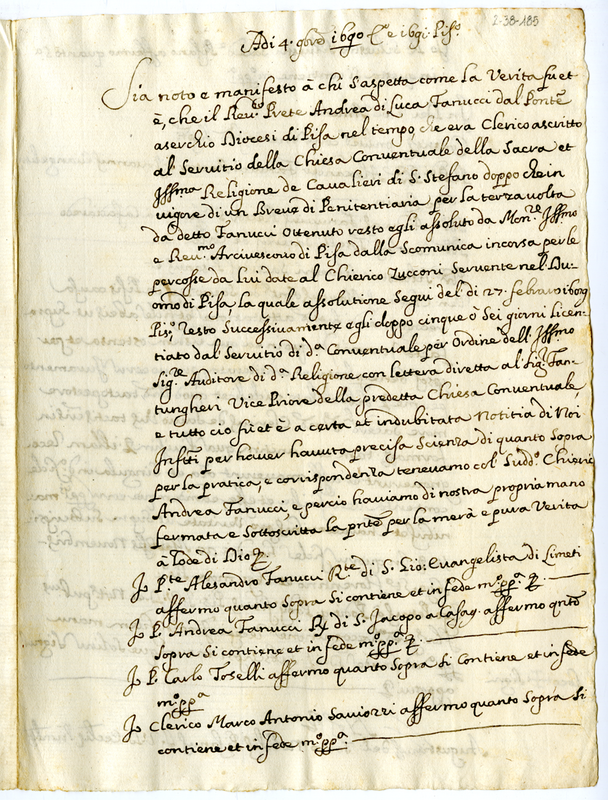 2-38-185
Adi 4. 9bre 1690 Co. e 1691. Piso.
Sia noto e manifesto à chi Saspetta come la Verita fu et
è, che il Revdo. Prete Andrea di Luca Tanucci dal Ponte
aserchio Diocesi di Pisa nel tempo, che era Clerico ascritto
al Servitio della Chiesa Conventuale della Sacra et
Illma Religione de Cavalieri di S. Stefano doppo che in
vigore di un Breve di Penitentiaria per la terza volta
da detto Tanucci Ottenuto resto egli assoluto da Monre. Illmo
e Revmo. Arcivescovo di Pisa dalla Scomunica incorsa per le
percosse da Lui date al Chierico Zucconi Servente nel Du-
omo di Pisa, la quale assolutione Segui del di 27. febraro 1689
Piso, Resto Successivamente egli doppo cinque o Sei giorni Licen-
tiato dal Servitio di da. Conventuale per Ordine dell Illmo
Sigre. Auditore di da. Religione con lettera diretta al Sigr. Fan-
tungheri Vice Priore della predetta Chiesa Conventuale,
e tutto cio fu et è a certa et indubitata Notitia di Noi
Infsti. per haver havuta precisa Scienza di quanto Sopra
per la pratica, e corrispondenza tenevamo col' Suddo. Chierico
Andrea Tanucci, e percio haviamo di nostra propria mano
fermata e Sottoscritta la pnte per la mera e pura Verita
à Lode di Dio
Io Pte. Alesandro Tanucci Rte di S. Gio: Evangelista di Limeti
affermo quanto Sopra Si contiene et in fede mo. ppa.
Io P. Andrea Tanucci Rr di S. Jacopo a Cafag. affermo qnto
Sopra Si contiene et in fede mo. ppa.
Io P. Carlo Toselli affermo quanto Sopra Si Contiene et in fede
mo. ppa
Io Clerico Marco Antonio Saviozzi affermo quanto Sopra Si
contiene et in fede mo. ppa.